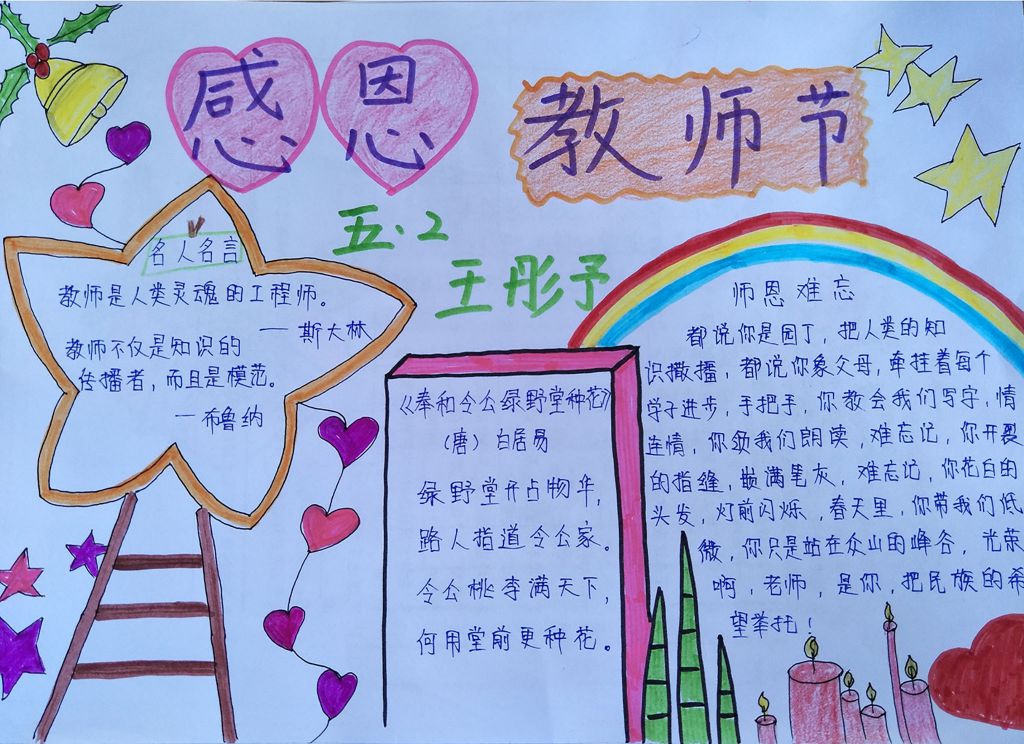 感恩
教师节
五·2
王彤予
名人名言
教师是人类灵魂的工程师。
——斯大林
教师不仅是知识的
传播者，而且是模范。
——布鲁纳
《奉和令公绿野堂种花》
（唐）白居易
绿野堂开占物华，
路人指道令公家。
令公桃李满天下，
何用堂前更种花。
师恩难忘
都说你是园丁，把人类的知
识撒播，都说你象父母，牵挂着每个
学子进步，手把手，你教会我们写字，情
连情，你领我们朗读，难忘记，你开裂
的指缝，嵌满笔灰，难忘记，你花白的
头发，灯前闪烁，春天里，你带我们低
微，你只是站在众山的峰谷，光荣
啊，老师，是你，把民族的希
望举托！